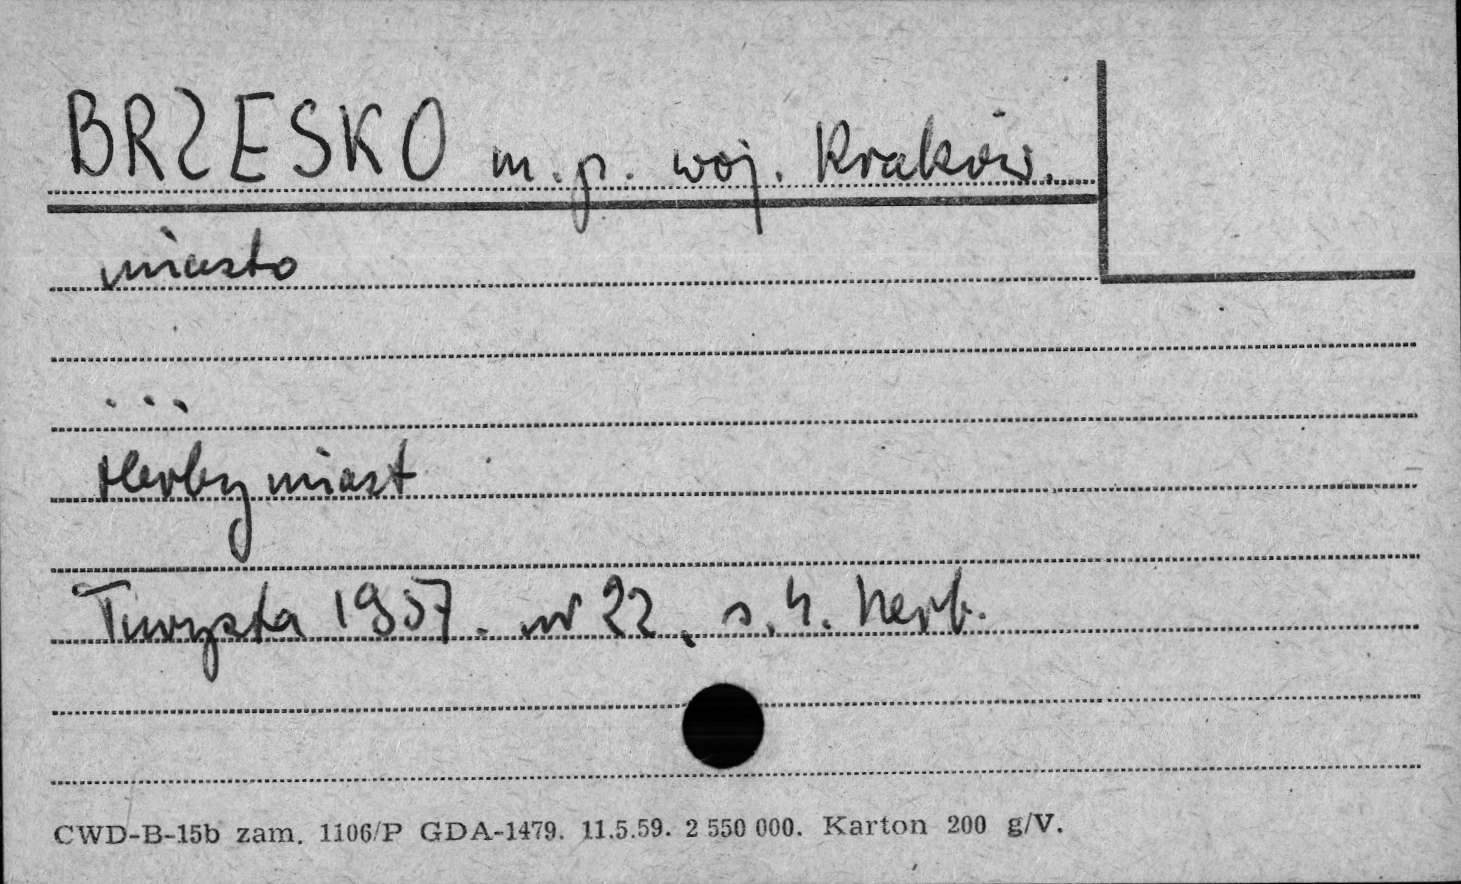 BRZESKO m.p. woj. Kraków.
miasto
...
Herby miast
Turysta 1957. nr 22, s.4. herb.
CWD-B-15b zam. 1106/P GDA-1479. 11.5.59. 2 550 000. Karton 200 g/V.